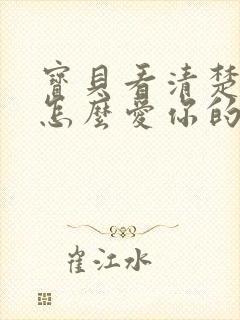 寶貝看清楚
怎麼愛你的
崔江水